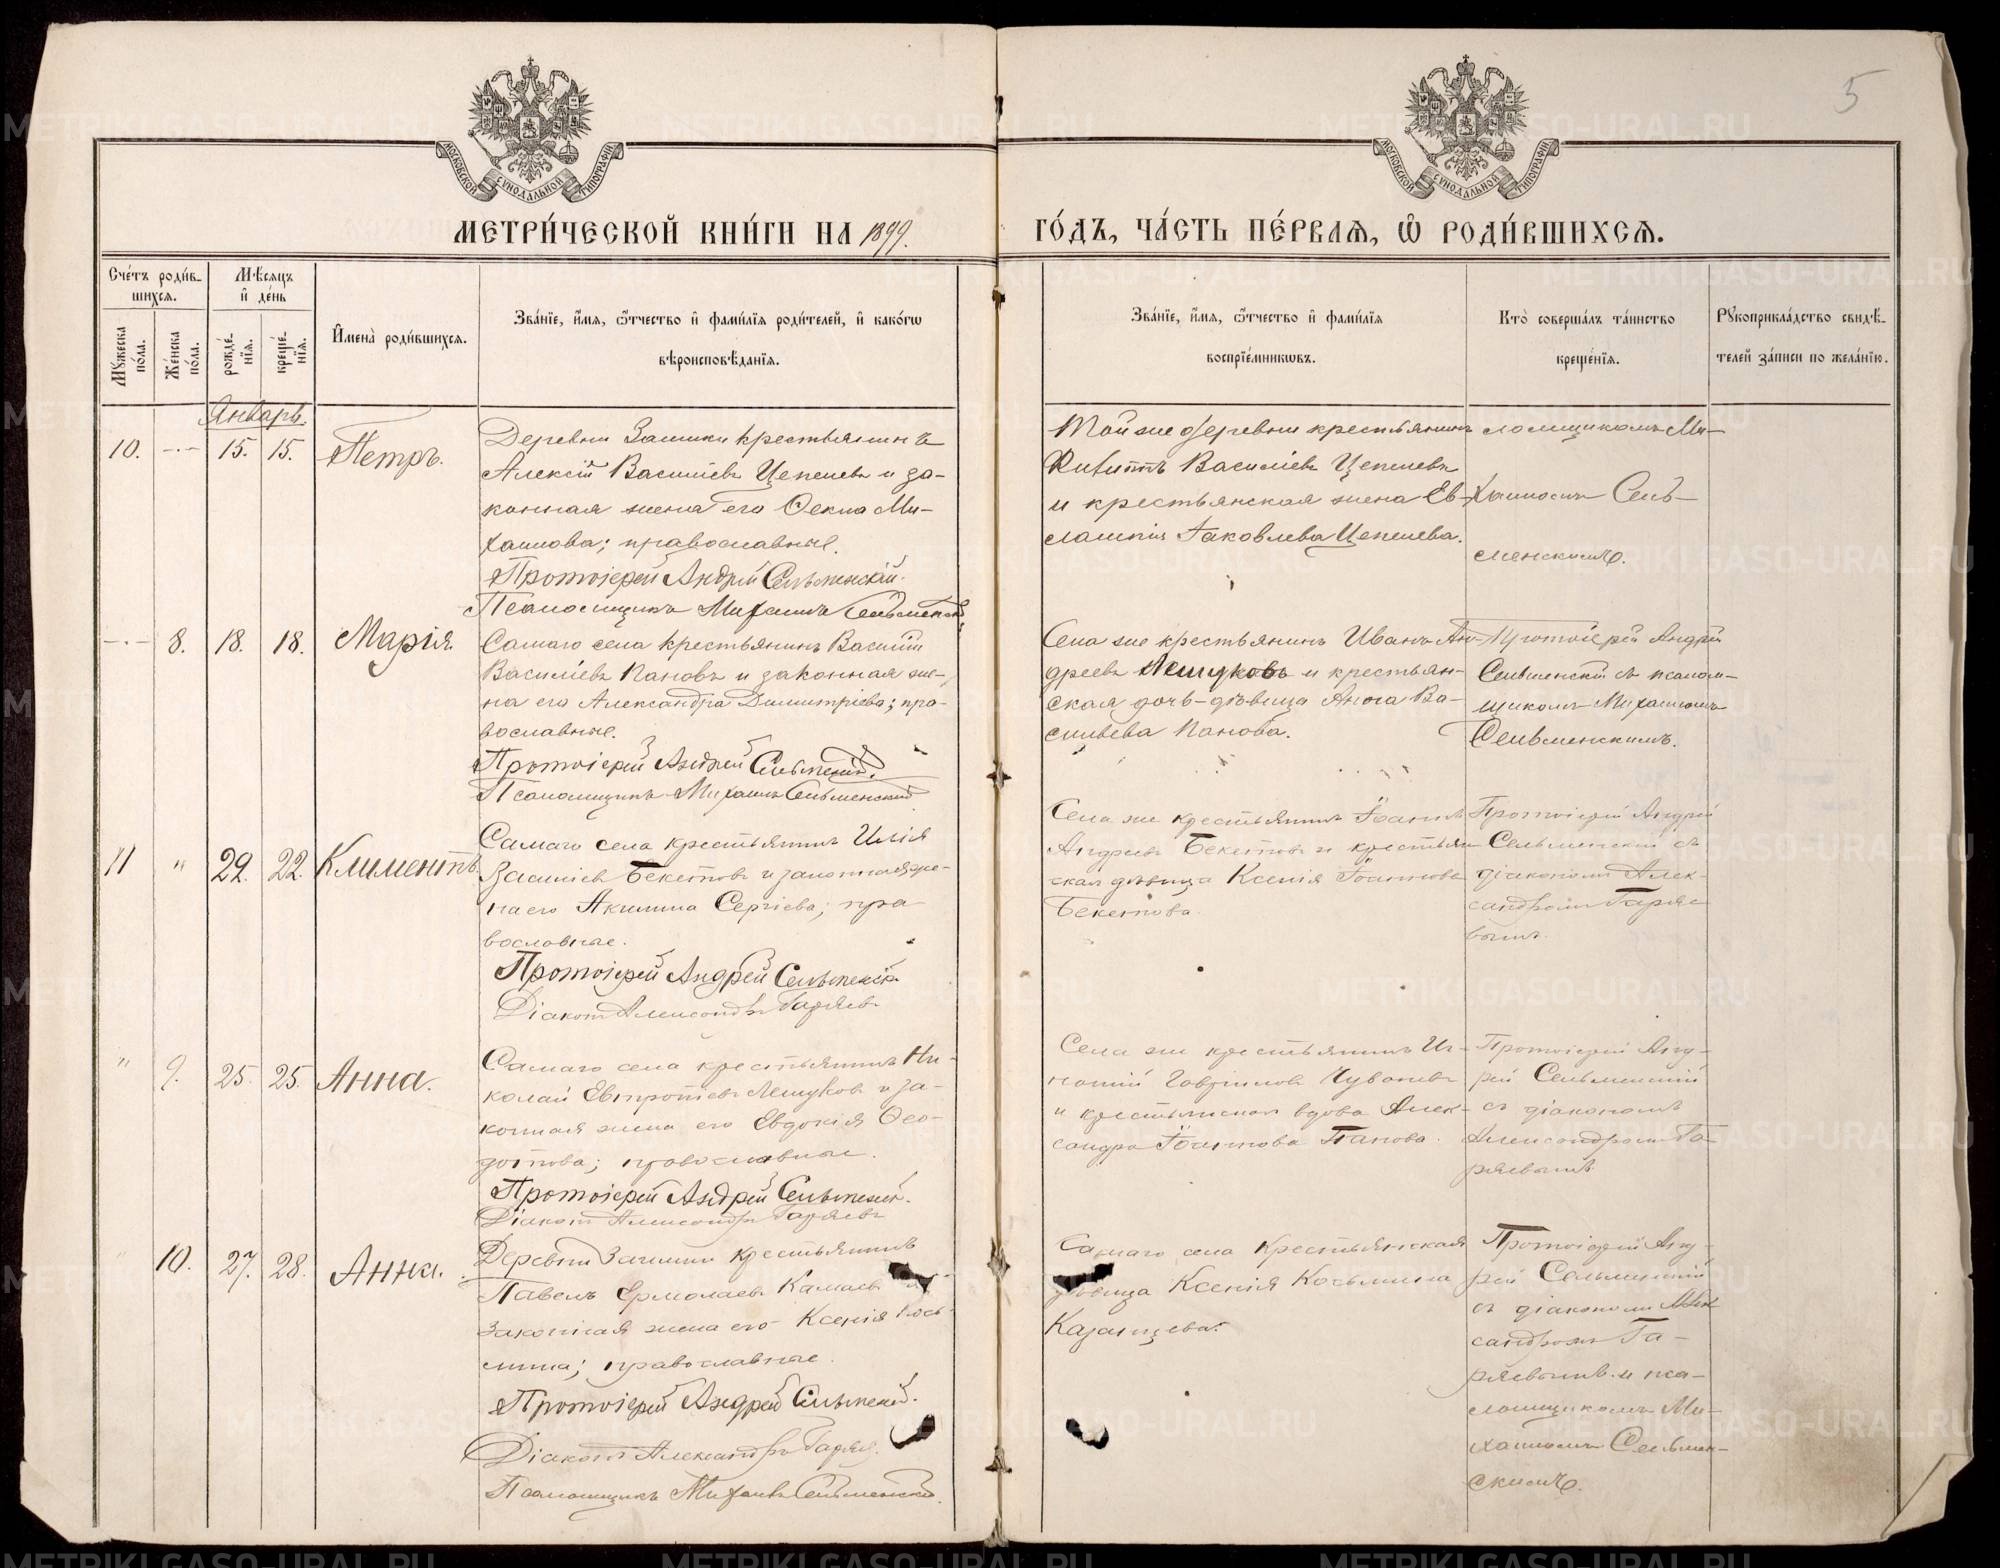 5
МОСКОВСКОЙ СѴНОДАЛЬНОЙ ТИПОГРАФІИ
МОСКОВСКОЙ СѴНОДАЛЬНОЙ ТИПОГРАФІИ
МЕТРИ́ЧЕСКОЙ КНИ́ГИ НА 1899.
ГО́ДЪ, ЧА́СТЬ ПЕ́РВАѦ, Ѡ҆ РОДИ́ВШИХСѦ.
Сче́тъ роди́в-
шихсѧ.
Мѣ́сѧцъ
и҆ де́нь
Мꙋ́жеска
по́ла.
Же́нска
по́ла.
рожде́-
нїѧ.
креще́-
нїѧ.
И҆мена̀ роди́вшихсѧ.
Зва́нїе, и҆́мѧ, ѻ҆́тчество и҆ фами́лїѧ роди́телей, и҆ како́гѡ
вѣроисповѣ́данїѧ.
Зва́нїе, и҆́мѧ, ѻ҆́тчество и҆ фами́лїѧ
воспрїе́мникѡвъ.
Кто̀ соверша́лъ та́инство
креще́нїѧ.
Рꙋкоприкла́дство свидѣ́-
телей за́писи по жела́нїю.
Январь.
10. -·- 15. 15. Петръ.
Деревни Заимки крестьянинъ
Алексій Василіевъ Цепелевъ и за-
конная жена его Фекла Ми-
хаилова; православные.
Протоіерей Андрей Сельменскій.
Псаломщикъ Михаилъ Сельменскій
Той же деревни крестьянинъ
Филиппъ Василіевъ Цепелевъ
и крестьянская жена Ев-
лампія Іаковлева Цепелева.
ломщикомъ Ми-
хаиломъ Сель-
менскимъ.
-·- 8. 18. 18. Марія
Самаго села крестьянинъ Василій
Василіевъ Пановъ и законная же-
на его Александра Димитріева; пра-
вославные.
Протоіерей Андрей Сельменскій.
Псаломщикъ Михаилъ Сельменскій
Села же крестьянинъ Иванъ Ан-
дреевъ Лешуковъ и крестьян-
ская дочь-дѣвица Анна Ва-
сильева Панова.
Протоіерей Андрей
Сельменскій съ псалом-
щикомъ Михаиломъ
Сельменскимъ.
11 " 22. 22. Климентъ.
Самаго села крестьянинъ Илія
Василіевъ Бекетовъ и законная же-
на его Акилина Сергіева; пра-
вославные.
Протоіерей Андрей Сельменскій
Діаконъ Александръ Гаряевъ
Села же крестьянинъ Іоаннъ
Андреевъ Бекетовъ и крестьян-
ская дѣвица Ксенія Іоаннова
Бекетова.
Протоіерей Андрей
Сельменскій съ
діакономъ Алек-
сандромъ Гаряе-
вымъ.
" 9. 25. 25. Анна.
Самаго села крестьянинъ Ни-
колай Евтропіевъ Лешуковъ и за-
конная жена его Евдокія Ѳео-
дотова; православные.
Протоіерей Андрей Сельменскій.
Діаконъ Александръ Гаряевъ
Села же крестьянинъ Иг-
натій Гавриловъ Чуваковъ
и крестьянская вдова Алек-
сандра Іоаннова Панова.
Протоіерей Анд-
рей Сельменскій
съ діакономъ
Александромъ Га-
ряевымъ
" 10. 27. 28. Анна.
Деревни Заимки крестьянинъ
Павелъ Ермолаевъ Камаевъ
законная жена его Ксенія Кось-
мина; православные.
Протоіерей Андрей Сельменскій.
Діаконъ Александръ Гаряевъ.
Псаломщикъ Михаилъ Сельменскій.
Самаго села крестьянская
дѣвица Ксенія Косьмина
Казанцева.
Протоіерей Анд-
рей Сельменскій
съ діакономъ Алек
сандромъ Га-
ряевымъ и пса-
ломщикомъ Ми-
хаиломъ Сельмен-
скимъ.
METRIKI.GASO-URAL.RU